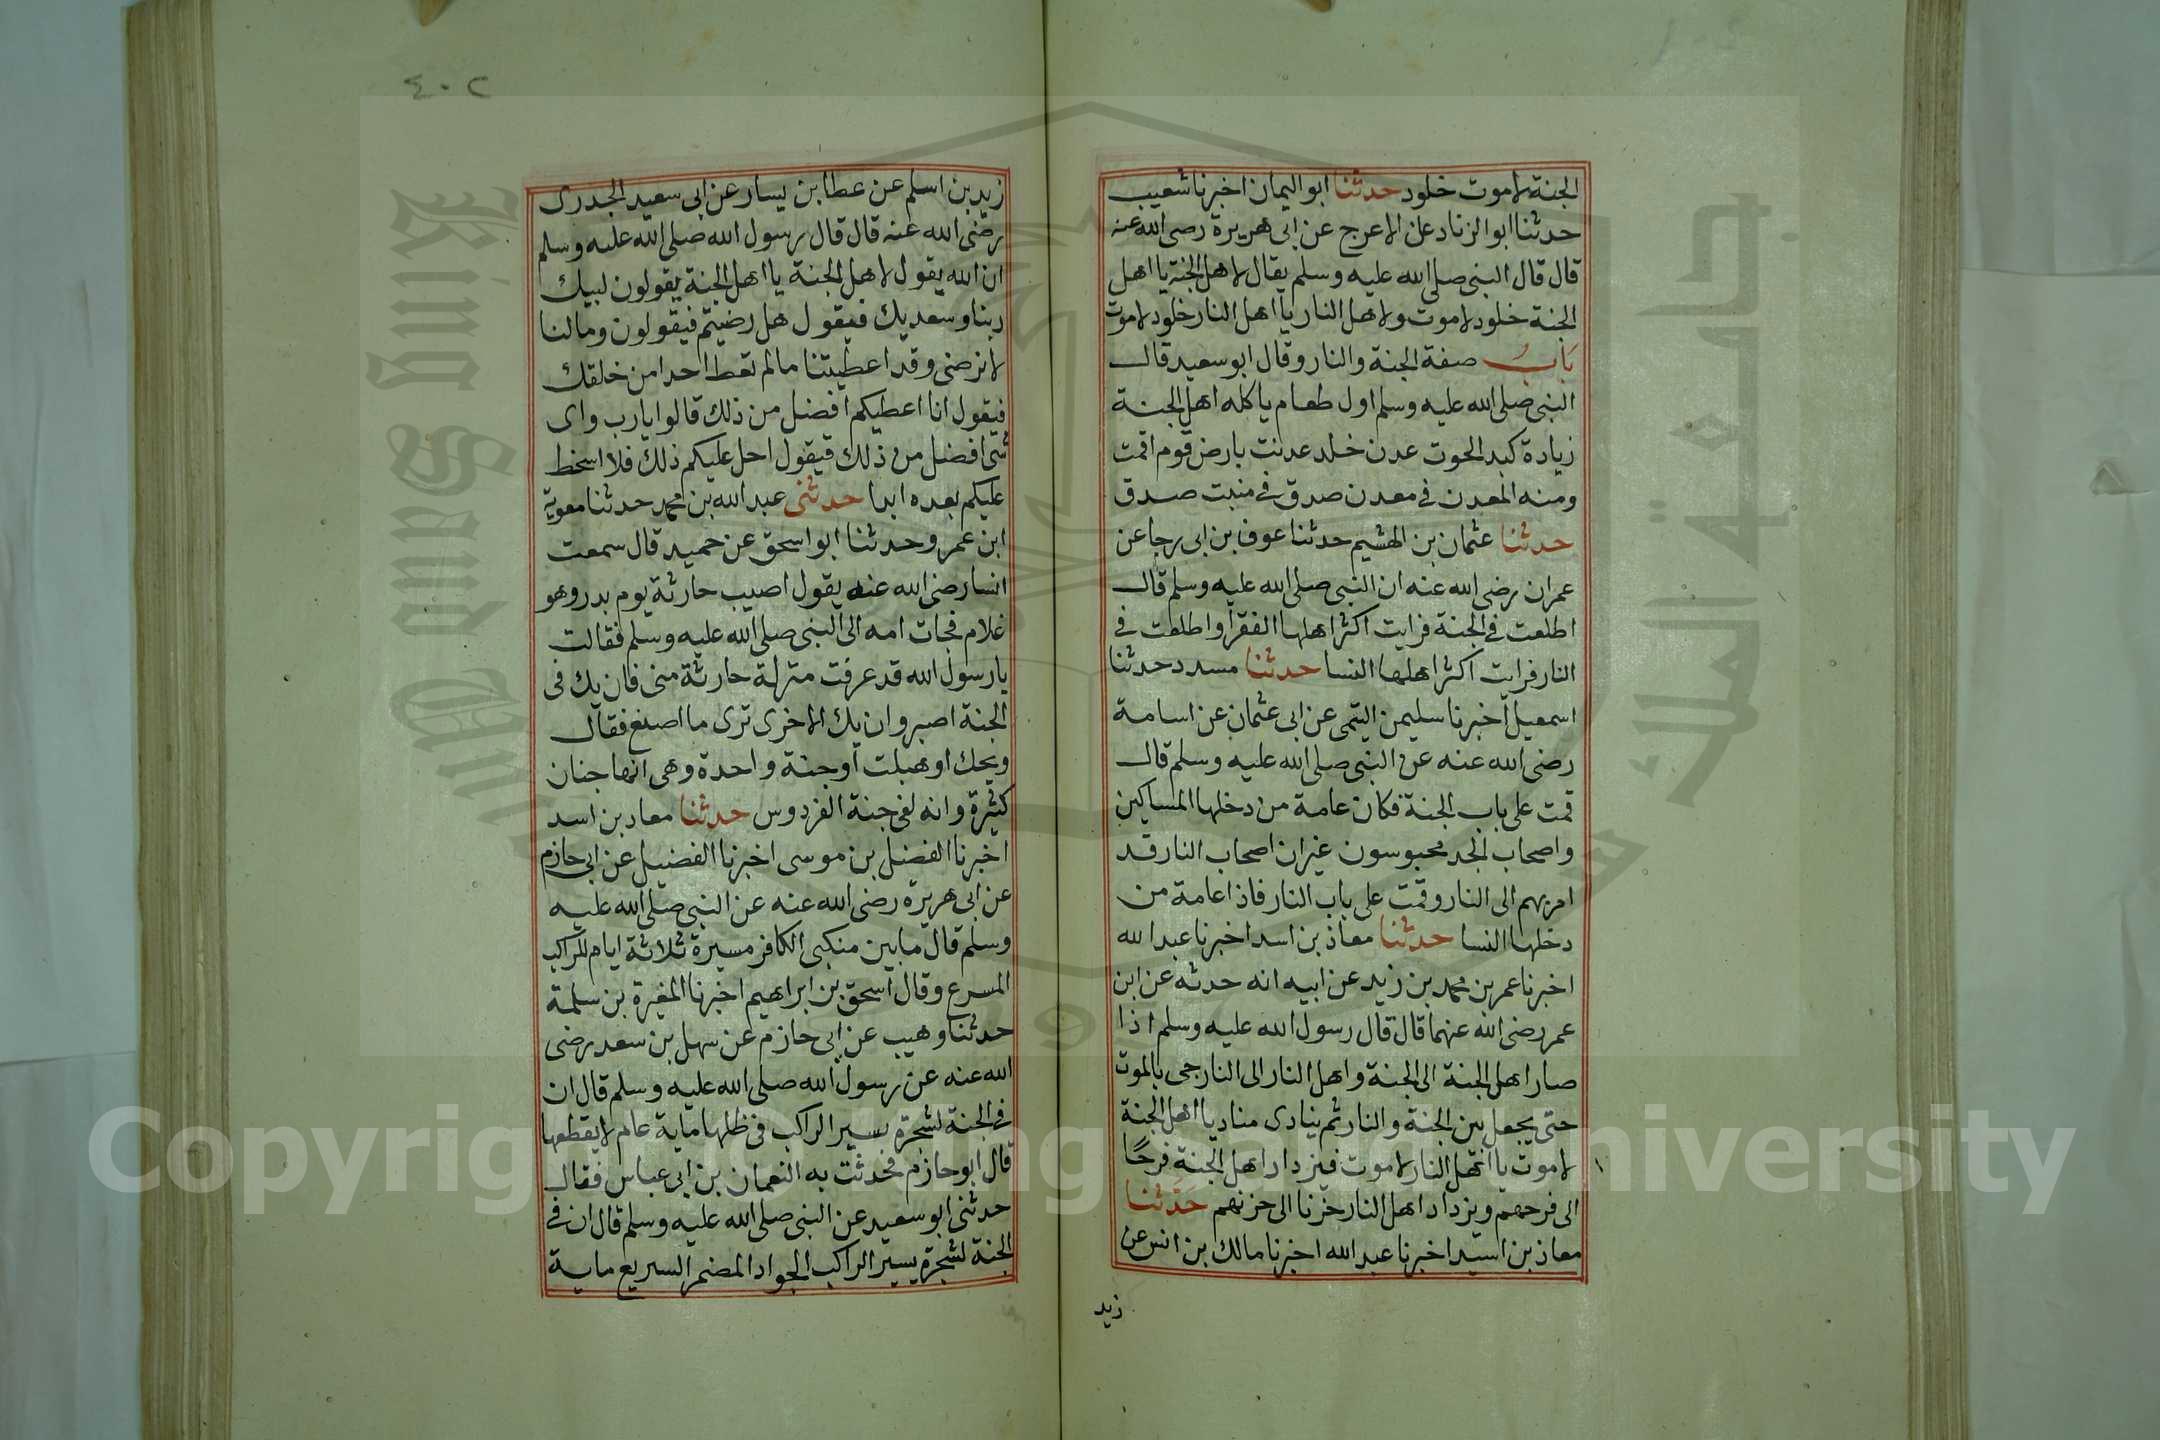 الجنة لاموت خلود حدثنا ابو اليمان اخبرنا شعيب
حدثنا ابو الزناد عن الاعرج عن ابى هريرة رضى الله عنه
قال قال النبى صلى الله عليه وسلم يقال لاهل الجنة يا اهل
الجنة خلود لاموت ولاهل النار يا اهل النار خلود لاموت
باب صفة الجنة والنار وقال ابو سعيد قال
النبى صلى الله عليه وسلم اول طعام ياكله اهل الجنة
زيادة كبد الحوت عدن خلد عدنت بارض قوم اقمت
ومنه المعدن فى معدن صدق فى منبت صدق
حدثنا عثمان بن الهشيم حدثنا عوف بن ابى رجا عن
عمران رضى الله عنه ان النبى صلى الله عليه وسلم قال
اطلعت فى الجنة فرايت اكثر اهلها الفقرا واطلعت فى
النار فرايت اكثر اهلها النسا حدثنا مسدد حدثنا
اسمعيل اخبرنا سليمن التيمى عن ابى عثمان عن اسامة
رضى الله عنه عن النبى صلى الله عليه وسلم قال
قمت على باب الجنة فكان عامة من دخلها المساكين
واصحاب الجد محبوسون غير ان اصحاب النار قد
امر بهم الى النار وقمت على باب النار فاذا عامة من
دخلها النسا حدثنا معاذ بن اسد اخبرنا عبد الله
اخبرنا عمر بن محمد بن زيد عن ابيه انه حدثه عن ابن
عمر رضى الله عنهما قال قال رسول الله عليه وسلم اذا
صار اهل الجنة الى الجنة واهل النار الى النار جى بالموت
حتى يجعل بين الجنة والنار ثم ينادى مناد يا اهل الجنة
لاموت يا اهل النار لاموت فيزداد اهل الجنة فرحًا
الى فرحهم ويزداد اهل النار حزنا الى حزنهم حدثنا
معاذ بن اسيد اخبرنا عبد الله اخبرنا مالك بن انس عن
زيد
٤٠٢
زيد بن اسلم عن عطا بن يسار عن ابى سعيد الجدرى
رضى الله عنه قال قال رسول الله صلى الله عليه وسلم
ان الله يقول لاهل الجنة يا اهل الجنة يقولون لبيك
ربنا وسعديك فيقول هل رضيتم فيقولون ومالنا
لانرضى وقد اعطيتنا مالم تعط احدا من خلقك
فيقول انا اعطيكم افضل من ذلك قالوا يارب واى
شى افضل من ذلك فيقول احل عليكم ذلك فلا اسخط
عليكم بعده ابدا حدثنى عبد الله بن محمد حدثنا معوية
ابن عمر وحدثنا ابو اسحق عن حميد قال سمعت
انسا رضى الله عنه يقول اصيب حارثة يوم بدر وهو
غلام فجات امه الى النبى صلى الله عليه وسلم فقالت
يا رسول الله قد عرفت منزلة حارثة منى فان يك فى
الجنة اصبر وان يك الاخرى ترى ما اصنع فقال
ويحك اوهبلت اوجنة واحدة وهى انها جنان
كثيرة وانه لفى جنة الفردوس حدثنا معاد بن اسد
اخبرنا الفضل بن موسى اخبرنا الفضيل عن ابى حازم
عن ابى هريرة رضى الله عنه عن النبى صلى الله عليه
وسلم قال ما بين منكبى الكافر مسيرة ثلاثة ايام للراكب
المسرع وقال اسحق بن ابراهيم اخبرنا المغيرة بن سلمة
حدثنا وهيب عن ابى حازم عن سهل بن سعد رضى
الله عنه عن رسول الله صلى الله عليه وسلم قال ان
فى الجنة لشجرة يسير الراكب فى ظلها ماية عام لا يقطعها
قال ابو حازم فحدثت به النعمان بن ابى عباس فقال
حدثنى ابو سعيد عن النبى صلى الله عليه وسلم قال ان فى
الجنة لشجرة يسير الراكب الجواد المضمر السريع ماية